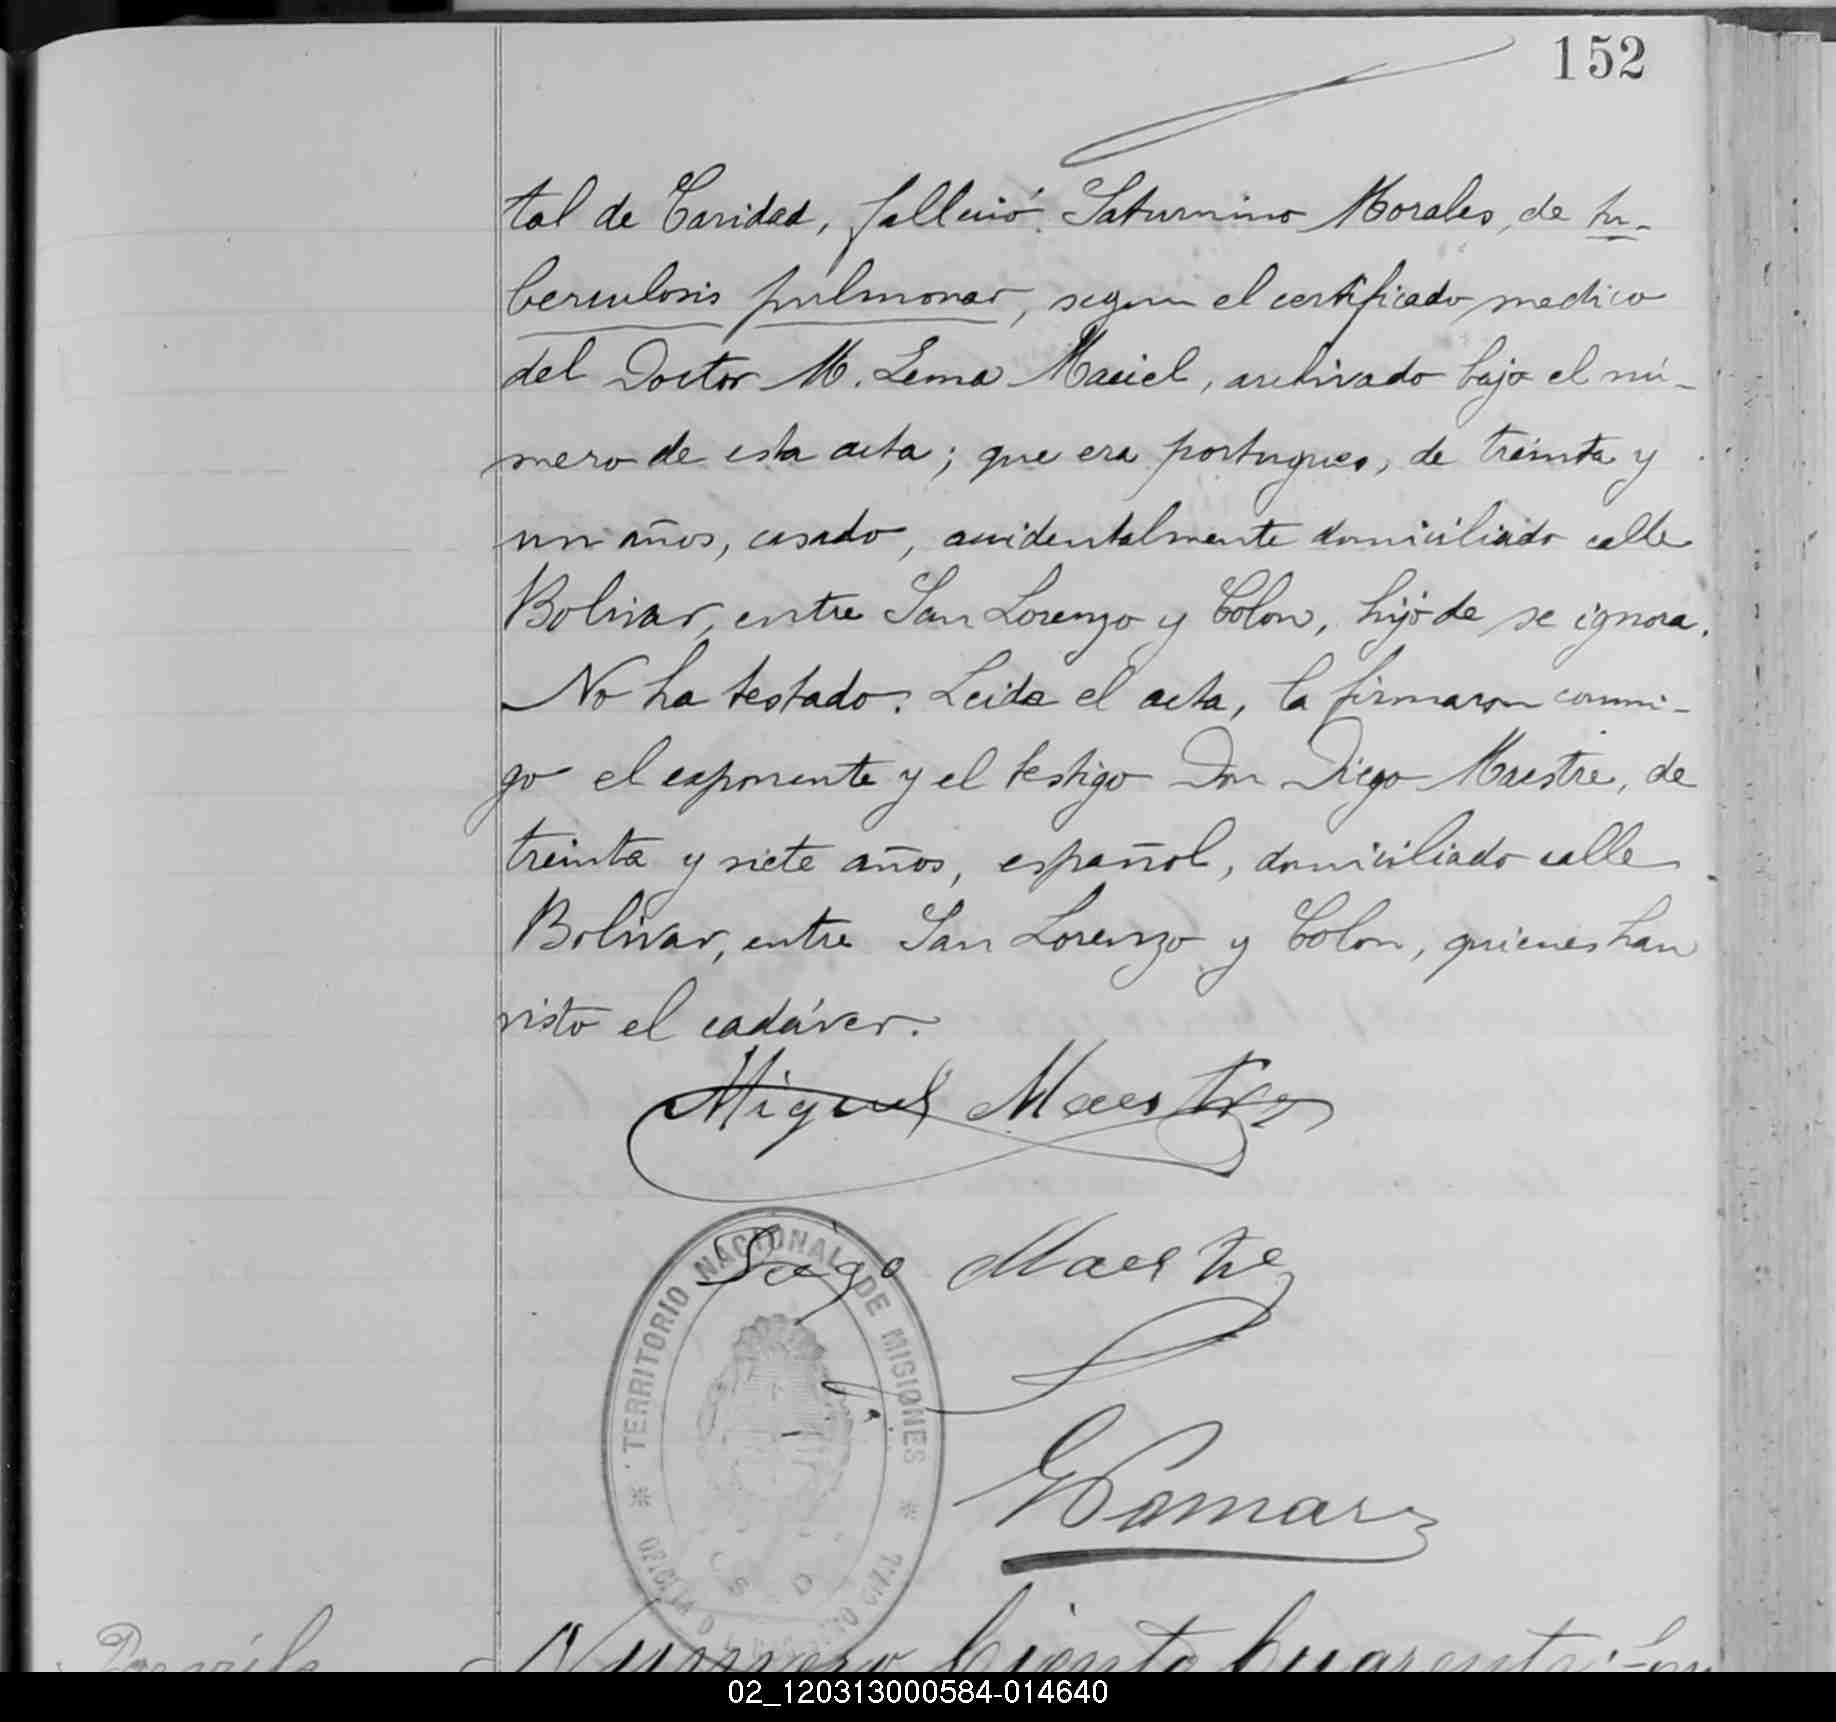 152
tal de Caridad, falleció Saturnino Morales, de tu-
berculosis pulmonar, segun el certificado medico
del Doctor M. Lema Maciel, archivado bajo el nú-
mero de esta acta; que era portugues, de treinta y
un años, casado, accidentalmente domiciliado calle
Bolivar, entre San Lorenzo y Colon, hijo de se ignora.
No ha testado. Leida el acta, la firmaron conmi-
go el exponente y el testigo Don Diego Maestre, de
treinta y siete años, español, domiciliado calle
Bolivar, entre San Lorenzo y Colon, quienes han
visto el cadáver.
Miguel Maestre
Diego Maestre
TERRITORIO NACIONAL DE MISIONES
Numero Ciento Cuarenta
02_120313000584-014640